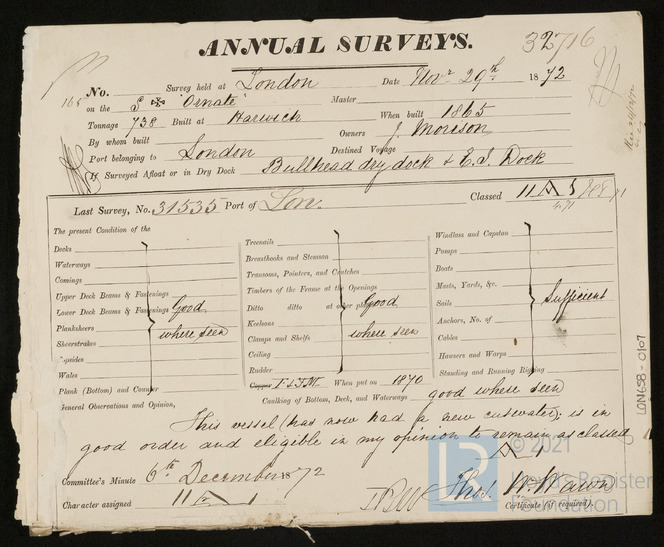 ANNUAL SURVEYS.
32716
No. Survey held at London Date Novr 29th 1872
165 on the S "Ornate" Master
Tonnage 738 Built at Harwich When built 1865
By whom built Owners J. Morison
Port belonging to London Destined Voyage
If Surveyed Afloat or in Dry Dock Bullhead dry dock & E. I. Dock
Last Survey, No. 31535 Port of Lon. Classed 11 A 1
4.71
The present Condition of the
Decks
Waterways
Comings
Upper Deck Beams & Fastenings
Lower Deck Beams & Fastenings Good
Planksheers where seen
Sheerstrakes
Topsides
Wales
Plank (Bottom) and Counter
Treenails
Breasthooks and Stemson
Transoms, Pointers, and Crutches
Timbers of the Frame at the Openings
Ditto ditto at other places Good
Keelsons
Clamps and Shelfs where seen
Ceiling
Rudder
Copper F & Y.M. When put on 1870
Caulking of Bottom, Deck, and Waterways good where seen
Windlass and Capstan
Pumps
Boats
Masts, Yards, &c.
Sails Sufficient
Anchors, No. of
Cables
Hawsers and Warps
Standing and Running Rigging
General Observations and Opinion,
This vessel (has now had a new cutwater), is in
good order and eligible in my opinion to remain as classed
11 A 1
Committee's Minute 6th December 1872
Character assigned 11 A 1
Thos.
Certificate (if required).
LON658-0107
© 2021
LR
Lloyd's Register
Foundation